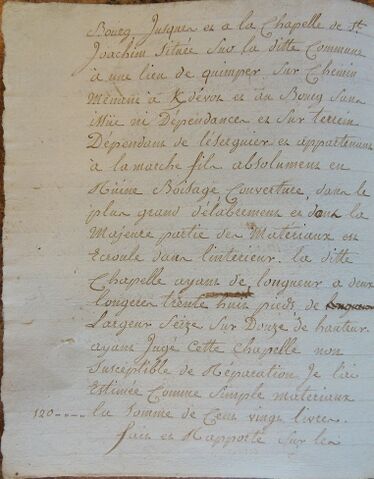 Bourg Jusques et a la Chapelle de St.
Joachim Située Sur la ditte Commune
a une lieu de quimper Sur Chemin
Menant à Kdévot et au Bourg Sans
issüe ni Dépendances et Sur terrein
Dépendant de léserguier et appartenant
a lamarche fils absolument en
Ruine Boisage Couverture, dans le
plus grand délabrement et dont la
Majeure partie des Matériaux est
Ecroulé dans l'interieur. la ditte
Chapelle ayant de longueur a deux
longeres trente huit pieds de
Largeur Seize Sur Douze de hauteur
ayant Jugé Cette Chapelle non
Susceptible de Réparation Je l'ai
Estimée Comme Simple materiaux
120---- la Somme de Cent vingt livres.
fait et Rapporté Sur les